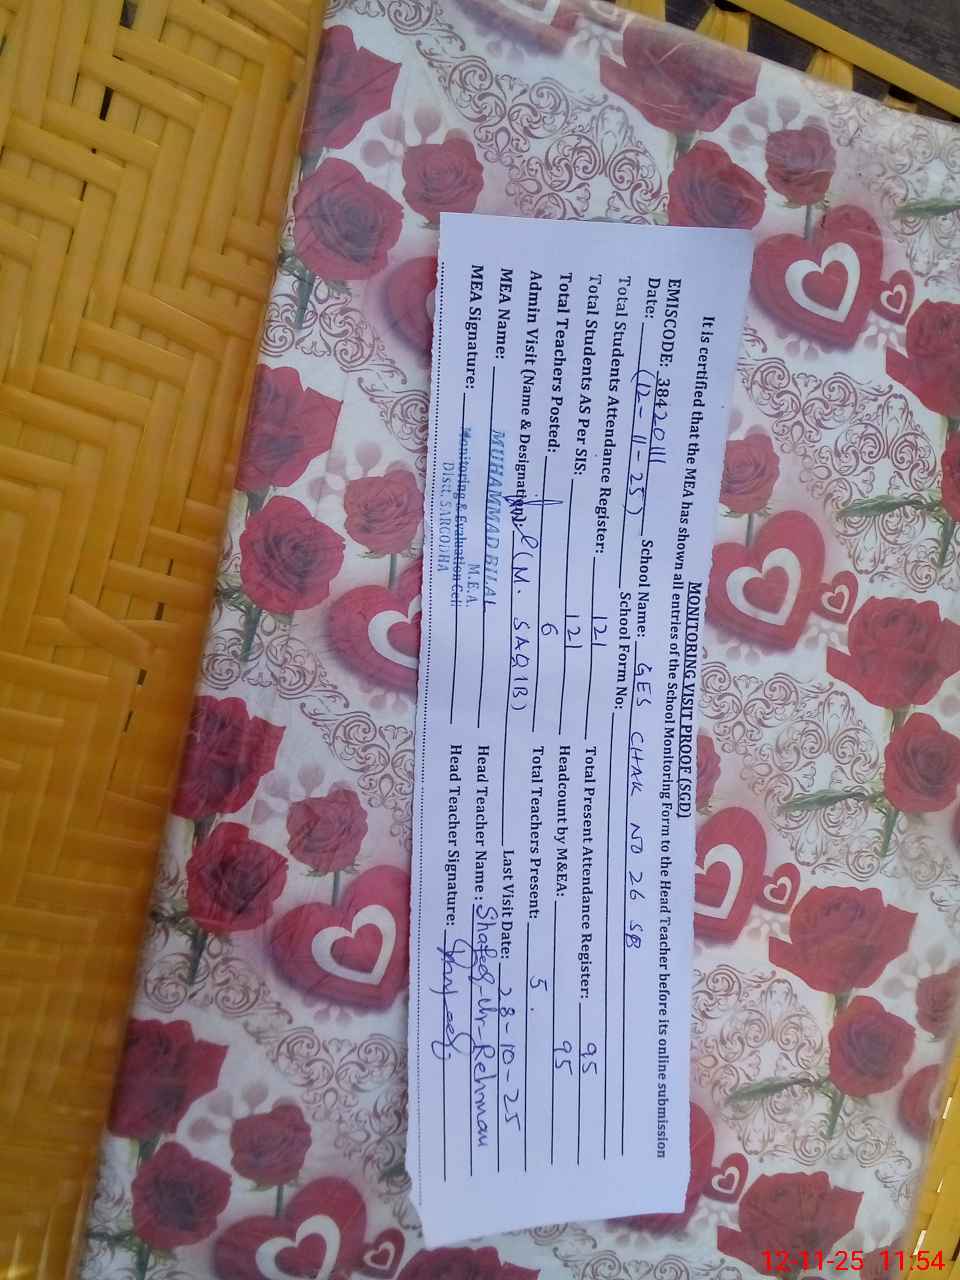 MONITORING VISIT PROOF (SGD)
It is certified that the MEA has shown all entries of the School Monitoring Form to the Head Teacher before its online submission
EMISCODE: 38420111 School Name: GES CHAK NO 26 SB
Date: (12-11-25) School Form No:
Total Students Attendance Register: 121 Total Present Attendance Register: 95
Total Students AS Per SIS: 121 Headcount by M&EA: 95
Total Teachers Posted: 6 Total Teachers Present: 5.
Admin Visit (Name & Designation): (M. SAQIB) Last Visit Date: 28-10-25
MEA Name: MUHAMMAD BILAL Head Teacher Name: Shafeeq-Ur-Rehman
M.E.A.
MEA Signature: Monitoring & Evaluation Cell Head Teacher Signature:
Distt. SARGODHA
12-11-25 11:54